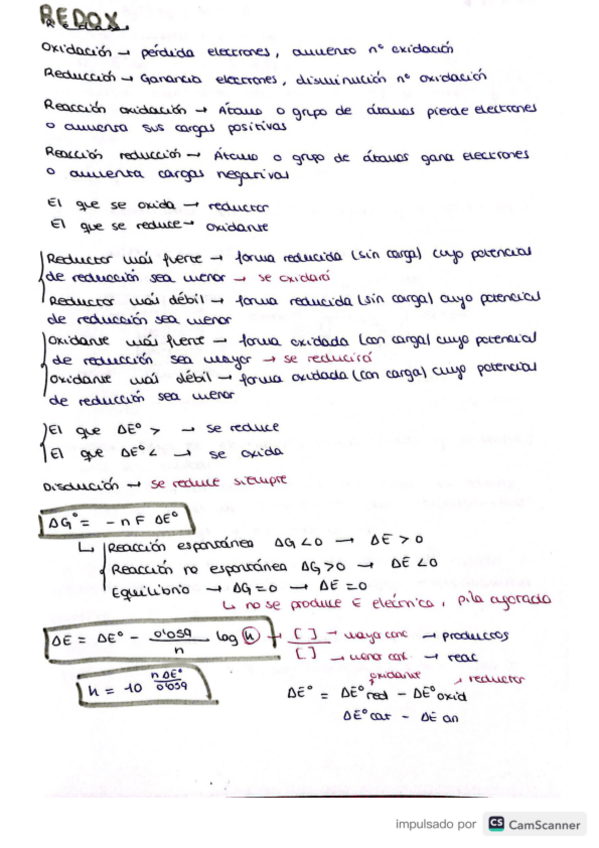 REDOX
Oxidación → pérdida electrones, aumento nº oxidación
Reducción → Ganancia electrones, disminución nº oxidación
Reacción oxidación → Átomo o grupo de átomos pierde electrones
o aumenta sus cargas positivas
Reacción reducción → Átomo o grupo de átomos gana electrones
o aumenta cargas negativas
El que se oxida → reductor
El que se reduce → oxidante
Reductor más fuerte → forma reducida (sin carga) cuyo potencial
de reducción sea menor → se oxidará
Reductor más débil → forma reducida (sin carga) cuyo potencial
de reducción sea menor
Oxidante más fuerte → forma oxidada (con carga) cuyo potencial
de reducción sea mayor → se reducirá
Oxidante más débil → forma oxidada (con carga) cuyo potencial
de reducción sea menor
El que ΔEº > → se reduce
El que ΔEº < → se oxida
Disolución → se reduce siempre
ΔGº = - n F ΔEº
Reacción espontánea ΔG < 0 → ΔE > 0
Reacción no espontánea ΔG > 0 → ΔE < 0
Equilibrio → ΔG = 0 → ΔE = 0
↳ no se produce E eléctrica, pila agotada
ΔE = ΔEº - 0'059/n log K → [ ] → mayor conc → productos
[ ] → menor conc → reac
K = 10 nΔEº/0'059
oxidante reductor
ΔEº = ΔEº red - ΔEº oxid
ΔEº cat - ΔE an
impulsado por CS CamScanner